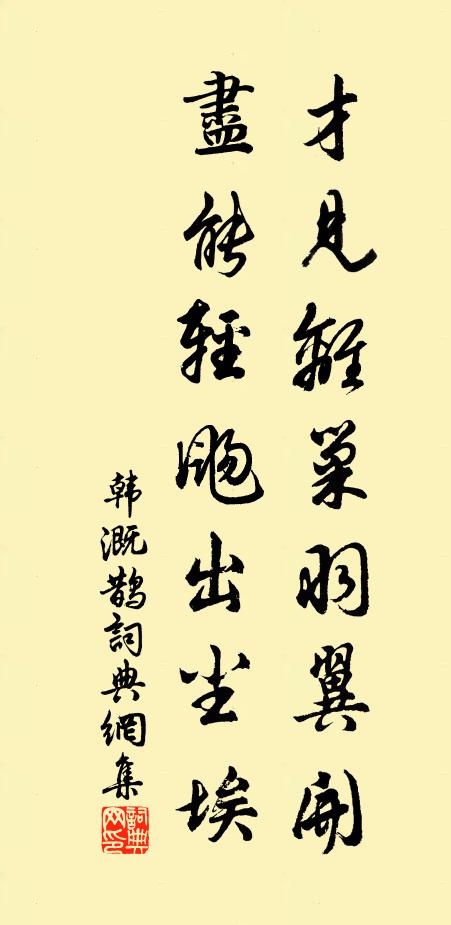 才見離巢羽翼開
盡能輕颺出尘埃
韩溉鵲詞典網集
詞典网印